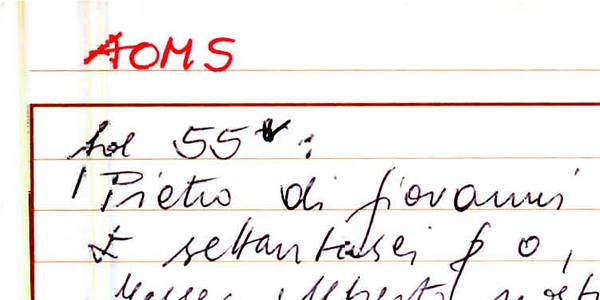 AOMS
fol 55v:
Pietro di Giovanni
£ settantasei β 0,